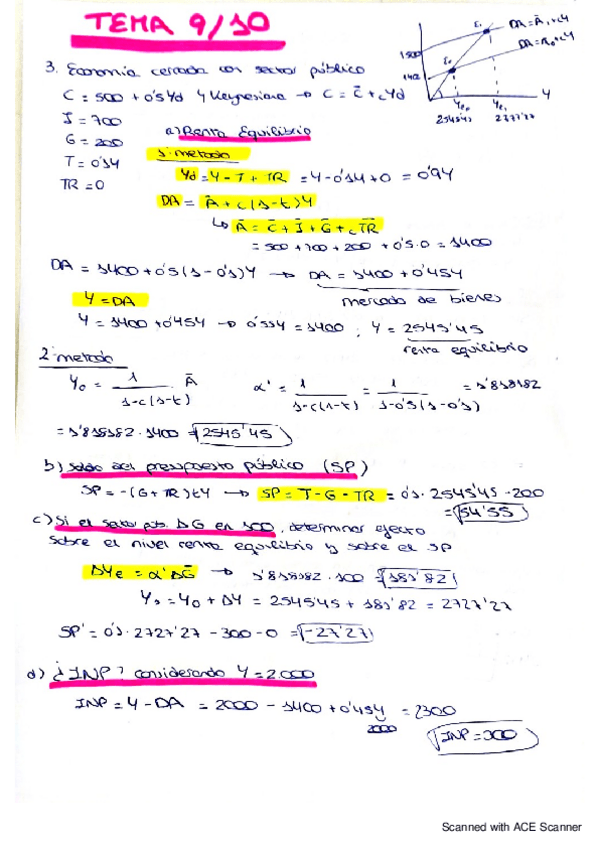 TEMA 9/10
DA = Ā₁ + cY
DA = A₀ + cY
E₁
E₀
1500
1400
Y
Ye₀ Ye₁
2545'45 2727'27
3. Economía cerrada con sector público
C = 500 + 0'5Yd y Keynesiana → C = C̄ + cYd
I = 700
G = 200
T = 0'1Y
TR = 0
a) Renta Equilibrio
1· metodo
Yd = Y - T + TR = Y - 0'1Y + 0 = 0'9Y
DA = Ā + c(1-t)Y
↳ Ā = C̄ + Ī + Ḡ + cTR̄
= 500 + 700 + 200 + 0'5·0 = 1400
DA = 1400 + 0'5(1-0'1)Y → DA = 1400 + 0'45Y
mercado de bienes
Y = DA
Y = 1400 + 0'45Y → 0'55Y = 1400 ; Y = 2545'45
renta equilibrio
2· metodo
Y₀ = 1/(1-c(1-t)) · Ā α' = 1/(1-c(1-t)) = 1/(1-0'5(1-0'1)) = 1'818182
= 1'818182 · 1400 = 2545'45
b) Saldo del presupuesto público (SP)
SP = -(G + TR) + tY → SP = T - G - TR = 0'1 · 2545'45 - 200
= 54'55
c) Si el sector pub. ΔG en 100, determinar efecto
sobre el nivel renta equilibrio y sobre el SP
ΔYe = α'ΔḠ → 1'818182 · 100 = 181'82
Y₁ = Y₀ + ΔY = 2545'45 + 181'82 = 2727'27
SP' = 0'1 · 2727'27 - 300 - 0 = -27'27
d) ¿INP? considerando Y = 2.000
INP = Y - DA = 2000 - 1400 + 0'45Y = 2300
2000
INP = 300
Scanned with ACE Scanner